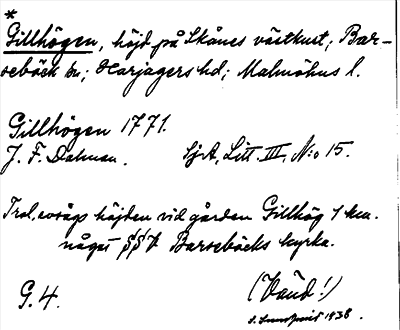 *
Gillhögen, höjd på Skånes västkust; Bar-
sebäck sn.; Harjagers hd; Malmöhus l.
Gillhögen 1771.
J. F. Dalman. SjA, Litt. III, N:o 15.
Trol. avses höjden vid gården Gillhög 1 km.
något Barsebäcks kyrka.
G. 4. (Vaud!)
1938.